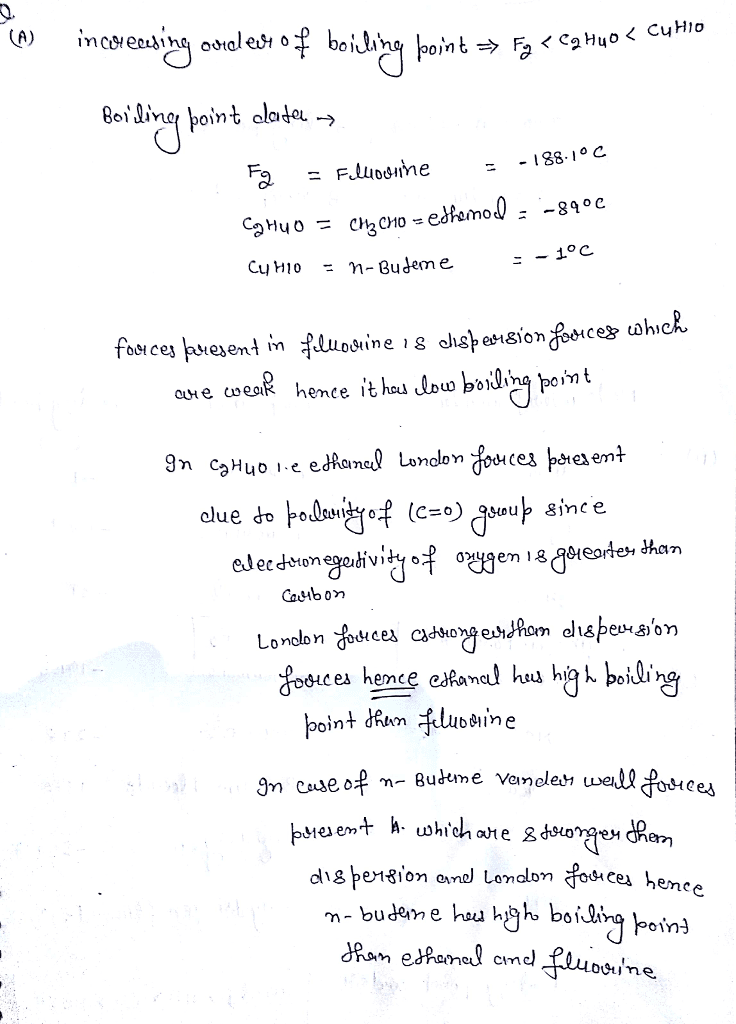 Q.
(A) increasing order of boiling point ⇒ F2 < C2H4O < C4H10
Boiling point data →
F2 = Fluorine = -188.1°C
C2H4O = CH3CHO = ethanol = -89°C
C4H10 = n-Butane = -1°C
forces present in fluorine is dispersion forces which
are weak hence it has low boiling point
In C2H4O i.e ethanal London forces present
due to polarity of (C=O) group since
electronegativity of oxygen is greater than
Carbon
London forces stronger than dispersion
forces hence ethanal has high boiling
point than fluorine
In case of n-Butane vander wall forces
present which are stronger than
dispersion and London forces hence
n-butane has high boiling point
than ethanal and fluorine